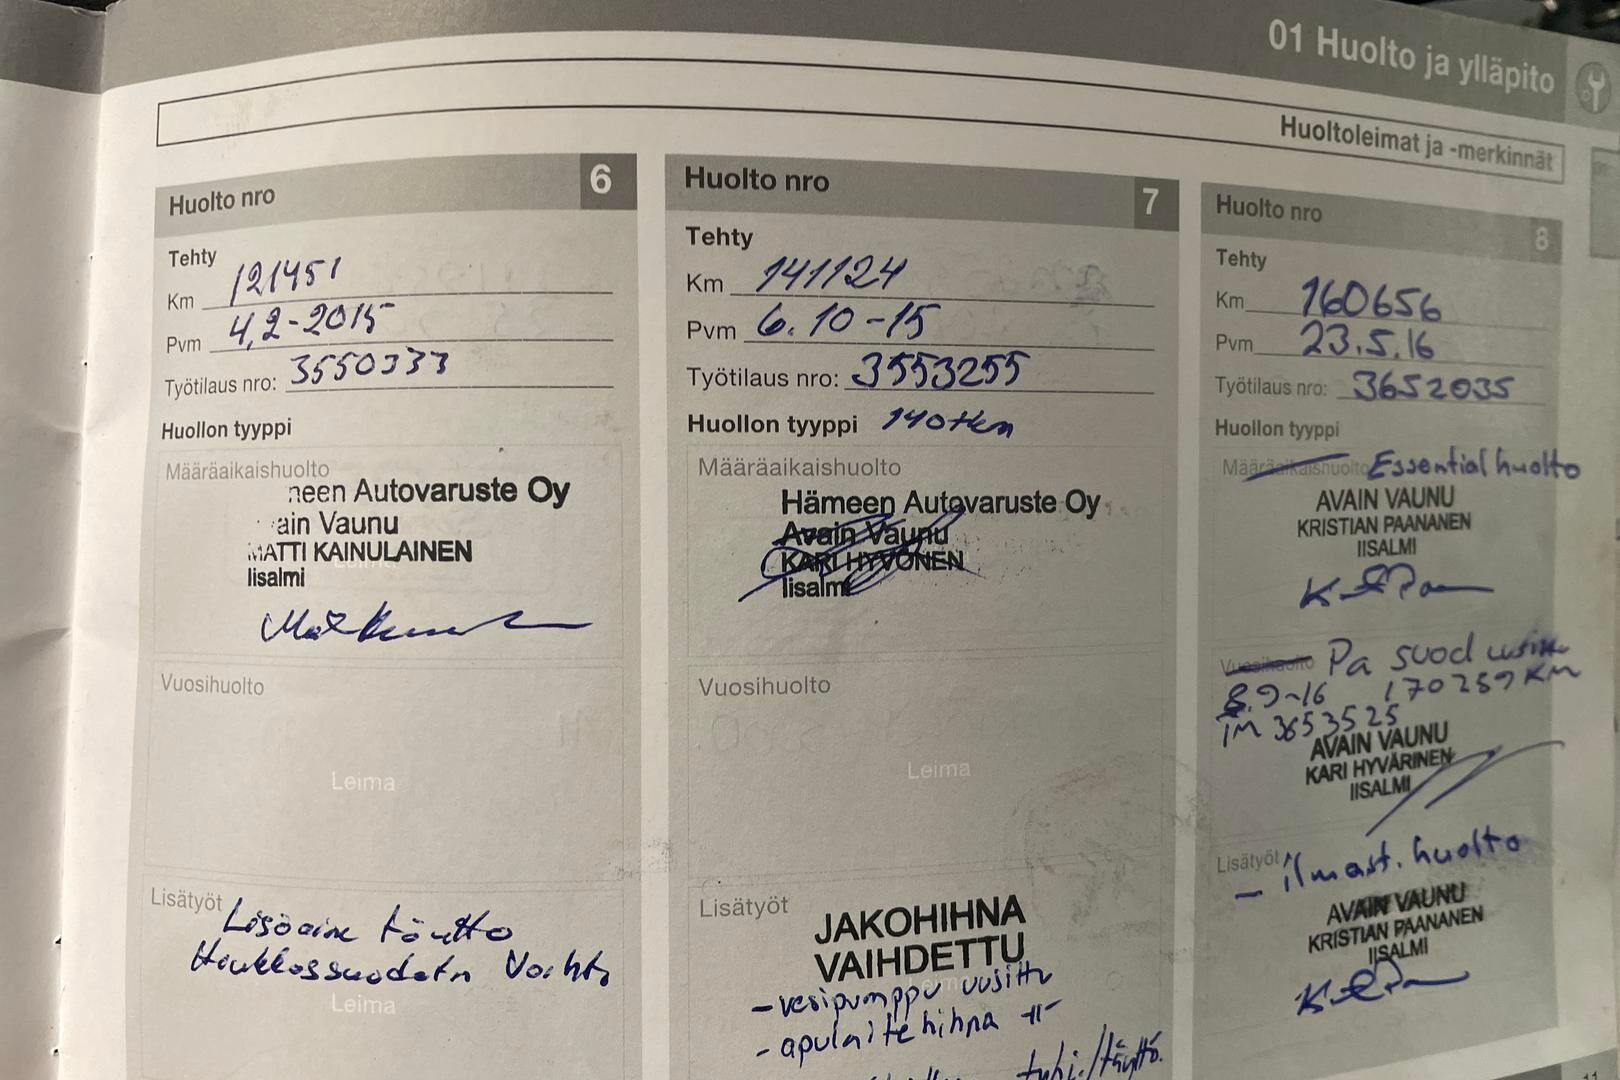 01 Huolto ja ylläpito
Huoltoleimat ja -merkinnät
Huolto nro 6
Tehty
Km 121451
Pvm 4,2-2015
Työtilaus nro: 3550333
Huollon tyyppi
Määräaikaishuolto
neen Autovaruste Oy
ain Vaunu
MATTI KAINULAINEN
Iisalmi
Leima
Vuosihuolto
Leima
Lisätyöt
Lisäaine täyttö
Hiukkassuodatin
Leima
Huolto nro 7
Tehty
Km 141124
Pvm 6.10-15
Työtilaus nro: 3553255
Huollon tyyppi 140tkm
Määräaikaishuolto
Hämeen Autovaruste Oy
Avain Vaunu
KARI HYVÖNEN
Iisalmi
Vuosihuolto
Leima
Lisätyöt
JAKOHIHNA
VAIHDETTU
-vesipumppu uusittu
-apulaitehihna -"-
tyhj./täyttö.
Huolto nro 8
Tehty
Km 160656
Pvm 23.5.16
Työtilaus nro: 3652035
Huollon tyyppi
Määräaikaishuolto Essential huolto
AVAIN VAUNU
KRISTIAN PAANANEN
IISALMI
Vuosihuolto Pa suod
8.9-16 170259 KM
TM 3653525
AVAIN VAUNU
KARI HYVÄRINEN
IISALMI
Lisätyöt
- ilmast. huolto
AVAIN VAUNU
KRISTIAN PAANANEN
IISALMI